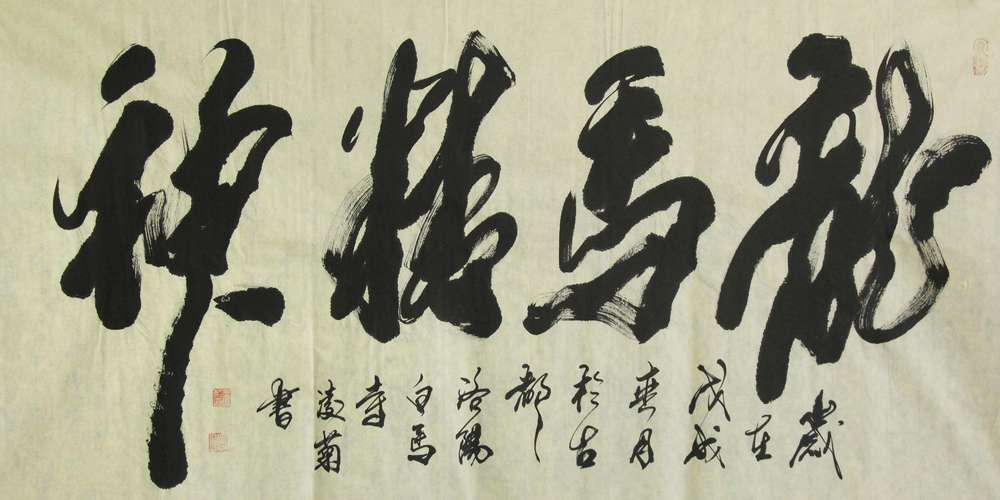 龍馬精神
歲
在
戊戌
月
於古
都
洛陽
白馬
寺
凌菊
書